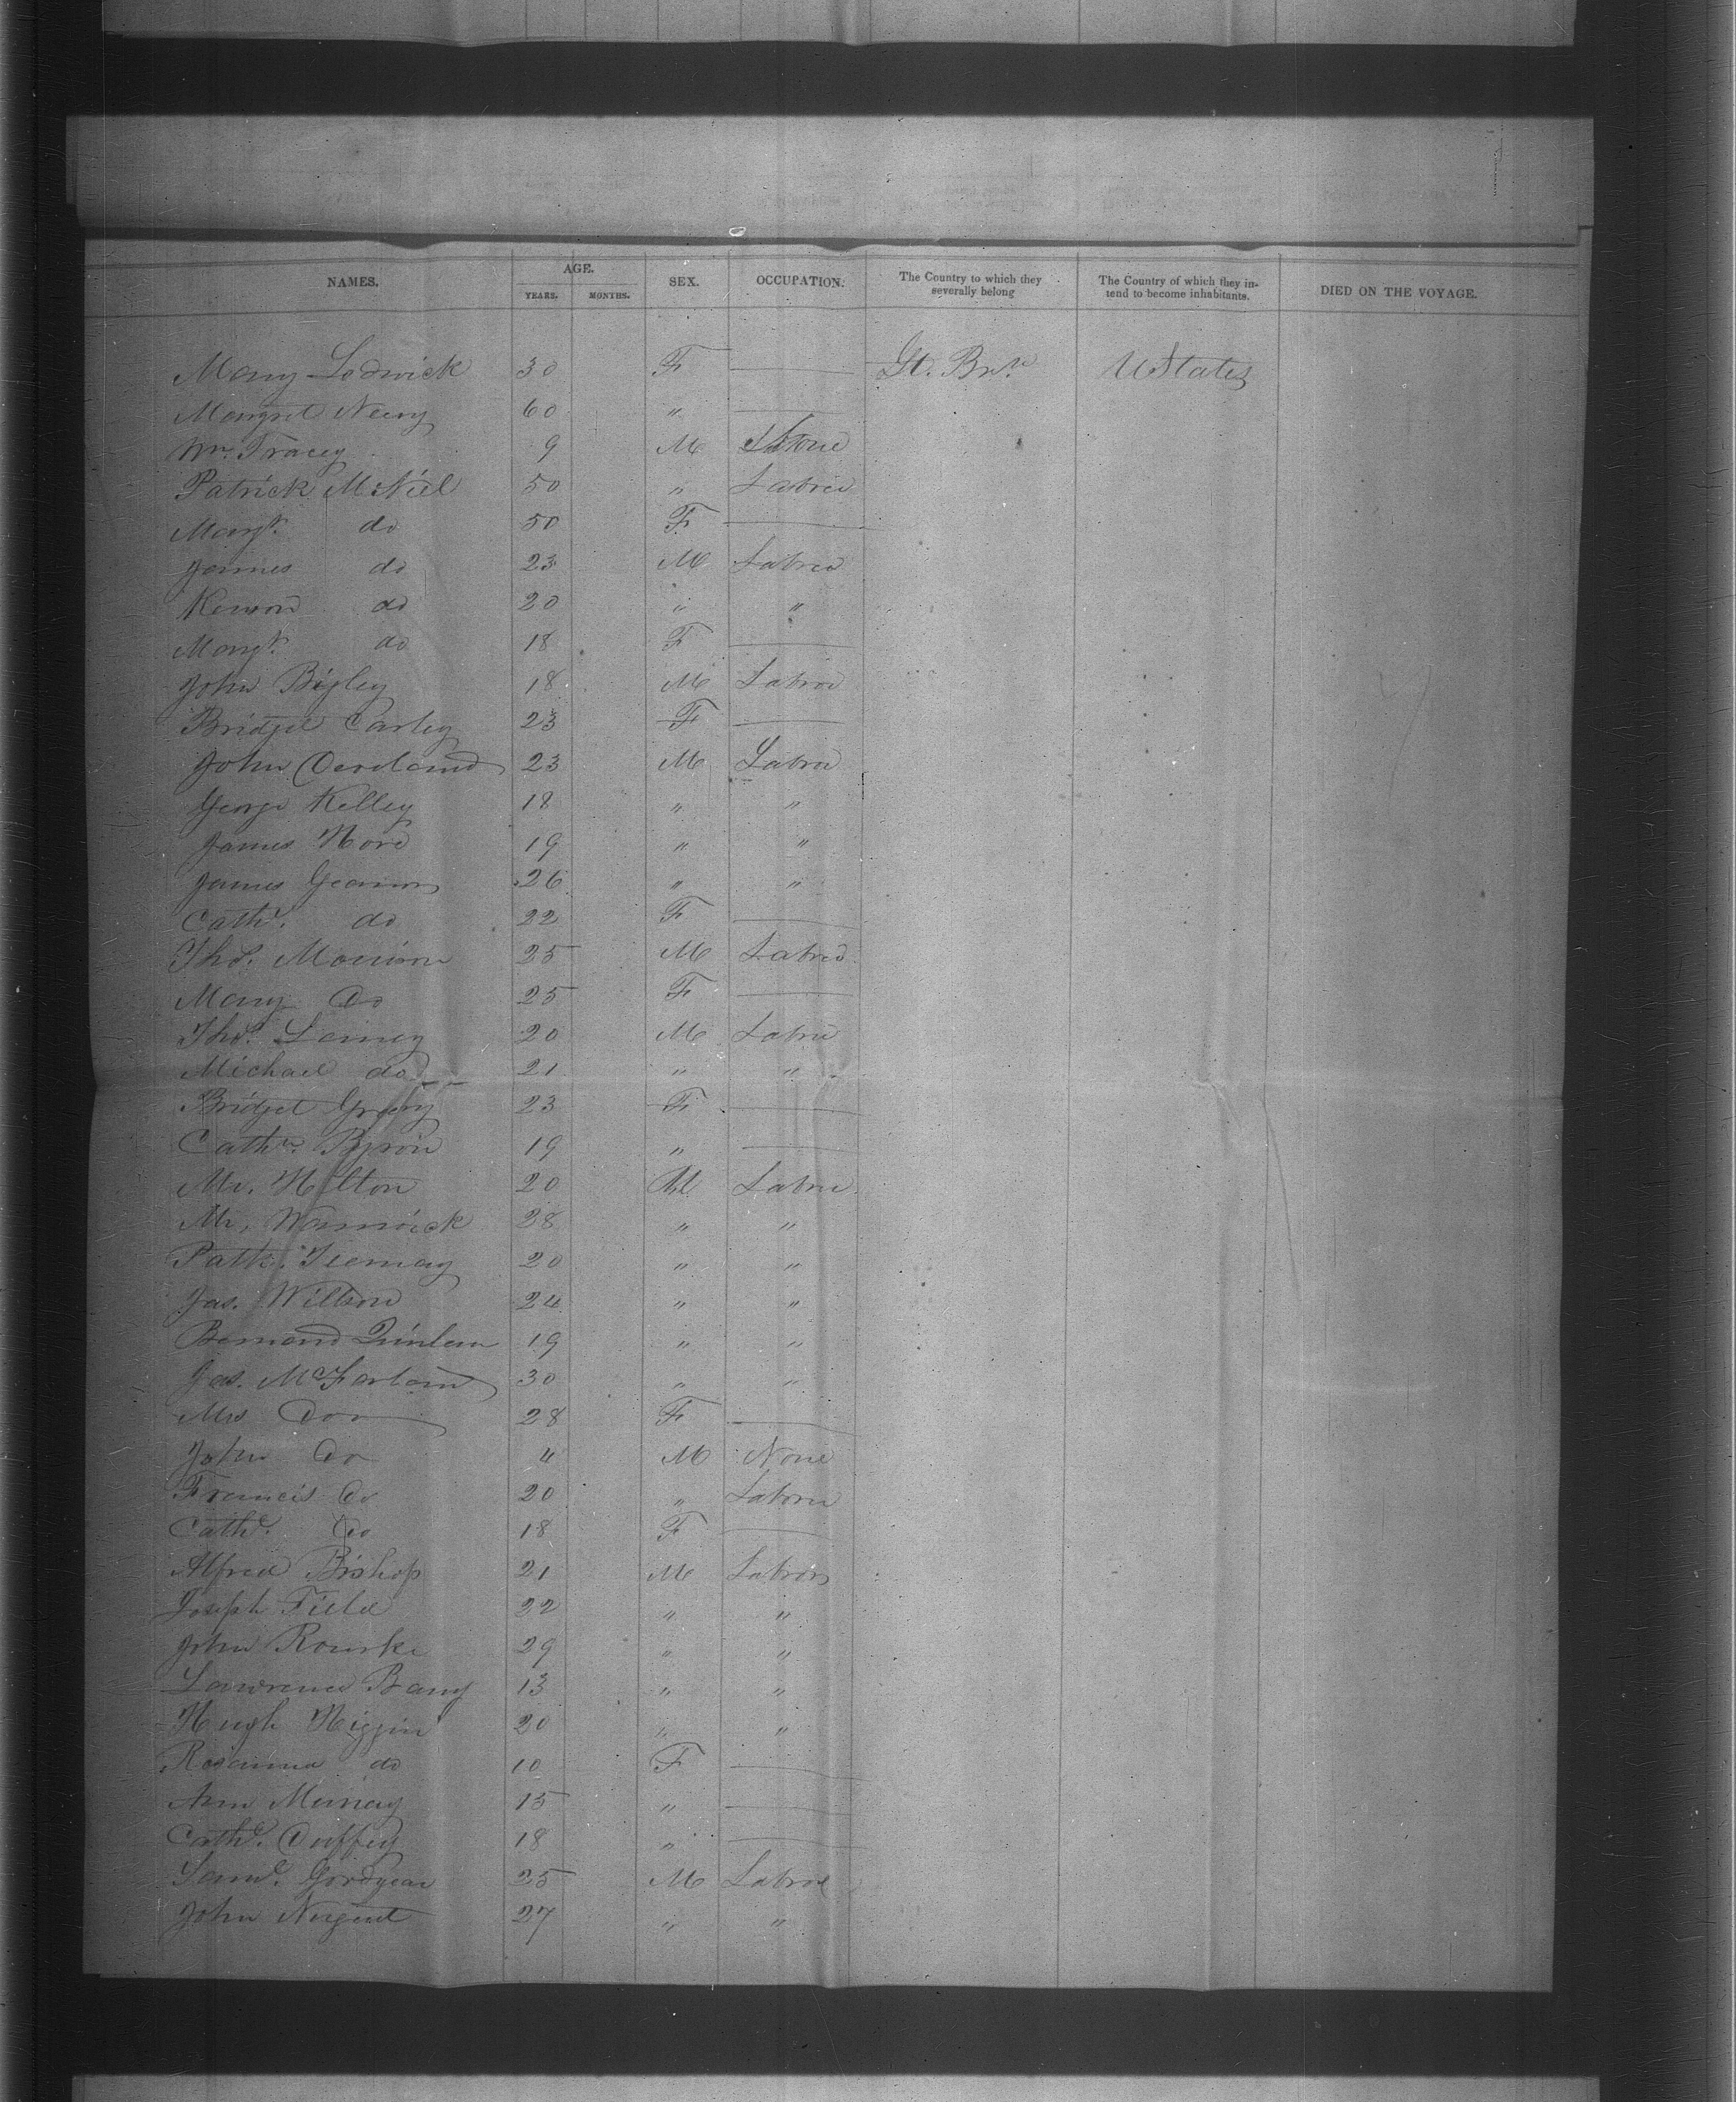 NAMES. AGE. SEX. OCCUPATION. The Country to which they severally belong The Country of which they intend to become inhabitants. DIED ON THE VOYAGE.
YEARS. MONTHS.
Mary Lodwick 30 F — Gt. Brn UStates
Margret Neery 60 " —
Wm. Tracey 9 M
Patrick McNiel 50 " Labrer
Margt. do 50 F —
James do 23 M Labrer
do 20 " "
Margt. do 18 F —
John Bigley 18 M Labror
Bridget Carley 23 F —
John 23 M Labrer
George Kelley 18 " "
James 19 " "
James 26 " "
Cathe. do 22 F —
Thos. Morrison 25 M Labrer
Mary Do 25 F —
Thos. 20 M Labrer
Michael do 21 " "
Bridget 23 F —
Cathn. Byron 19 " —
Mr. Hilton 20 M Labrer
Mr. Warnwick 28 " "
Patk. 20 " "
Jas. Willson 24 " "
Bernard Quinlan 19 " "
Jas. McFarland 30 " "
Mrs Do 28 F —
John Do 4 M None
Francis Do 20 " Labrer
Cathe. Do 18 F —
Alfred Bishop 21 M Labror
Joseph Field 22 " "
John Rourke 29 " "
Lawrence Barry 13 " "
Hugh Higgin 20 " "
Rosanna do 10 F —
Ann Murray 15 " —
Cathe. Duffey 18 " —
Saml. Goodyear 25 M Labror
John Nugent 27 " "